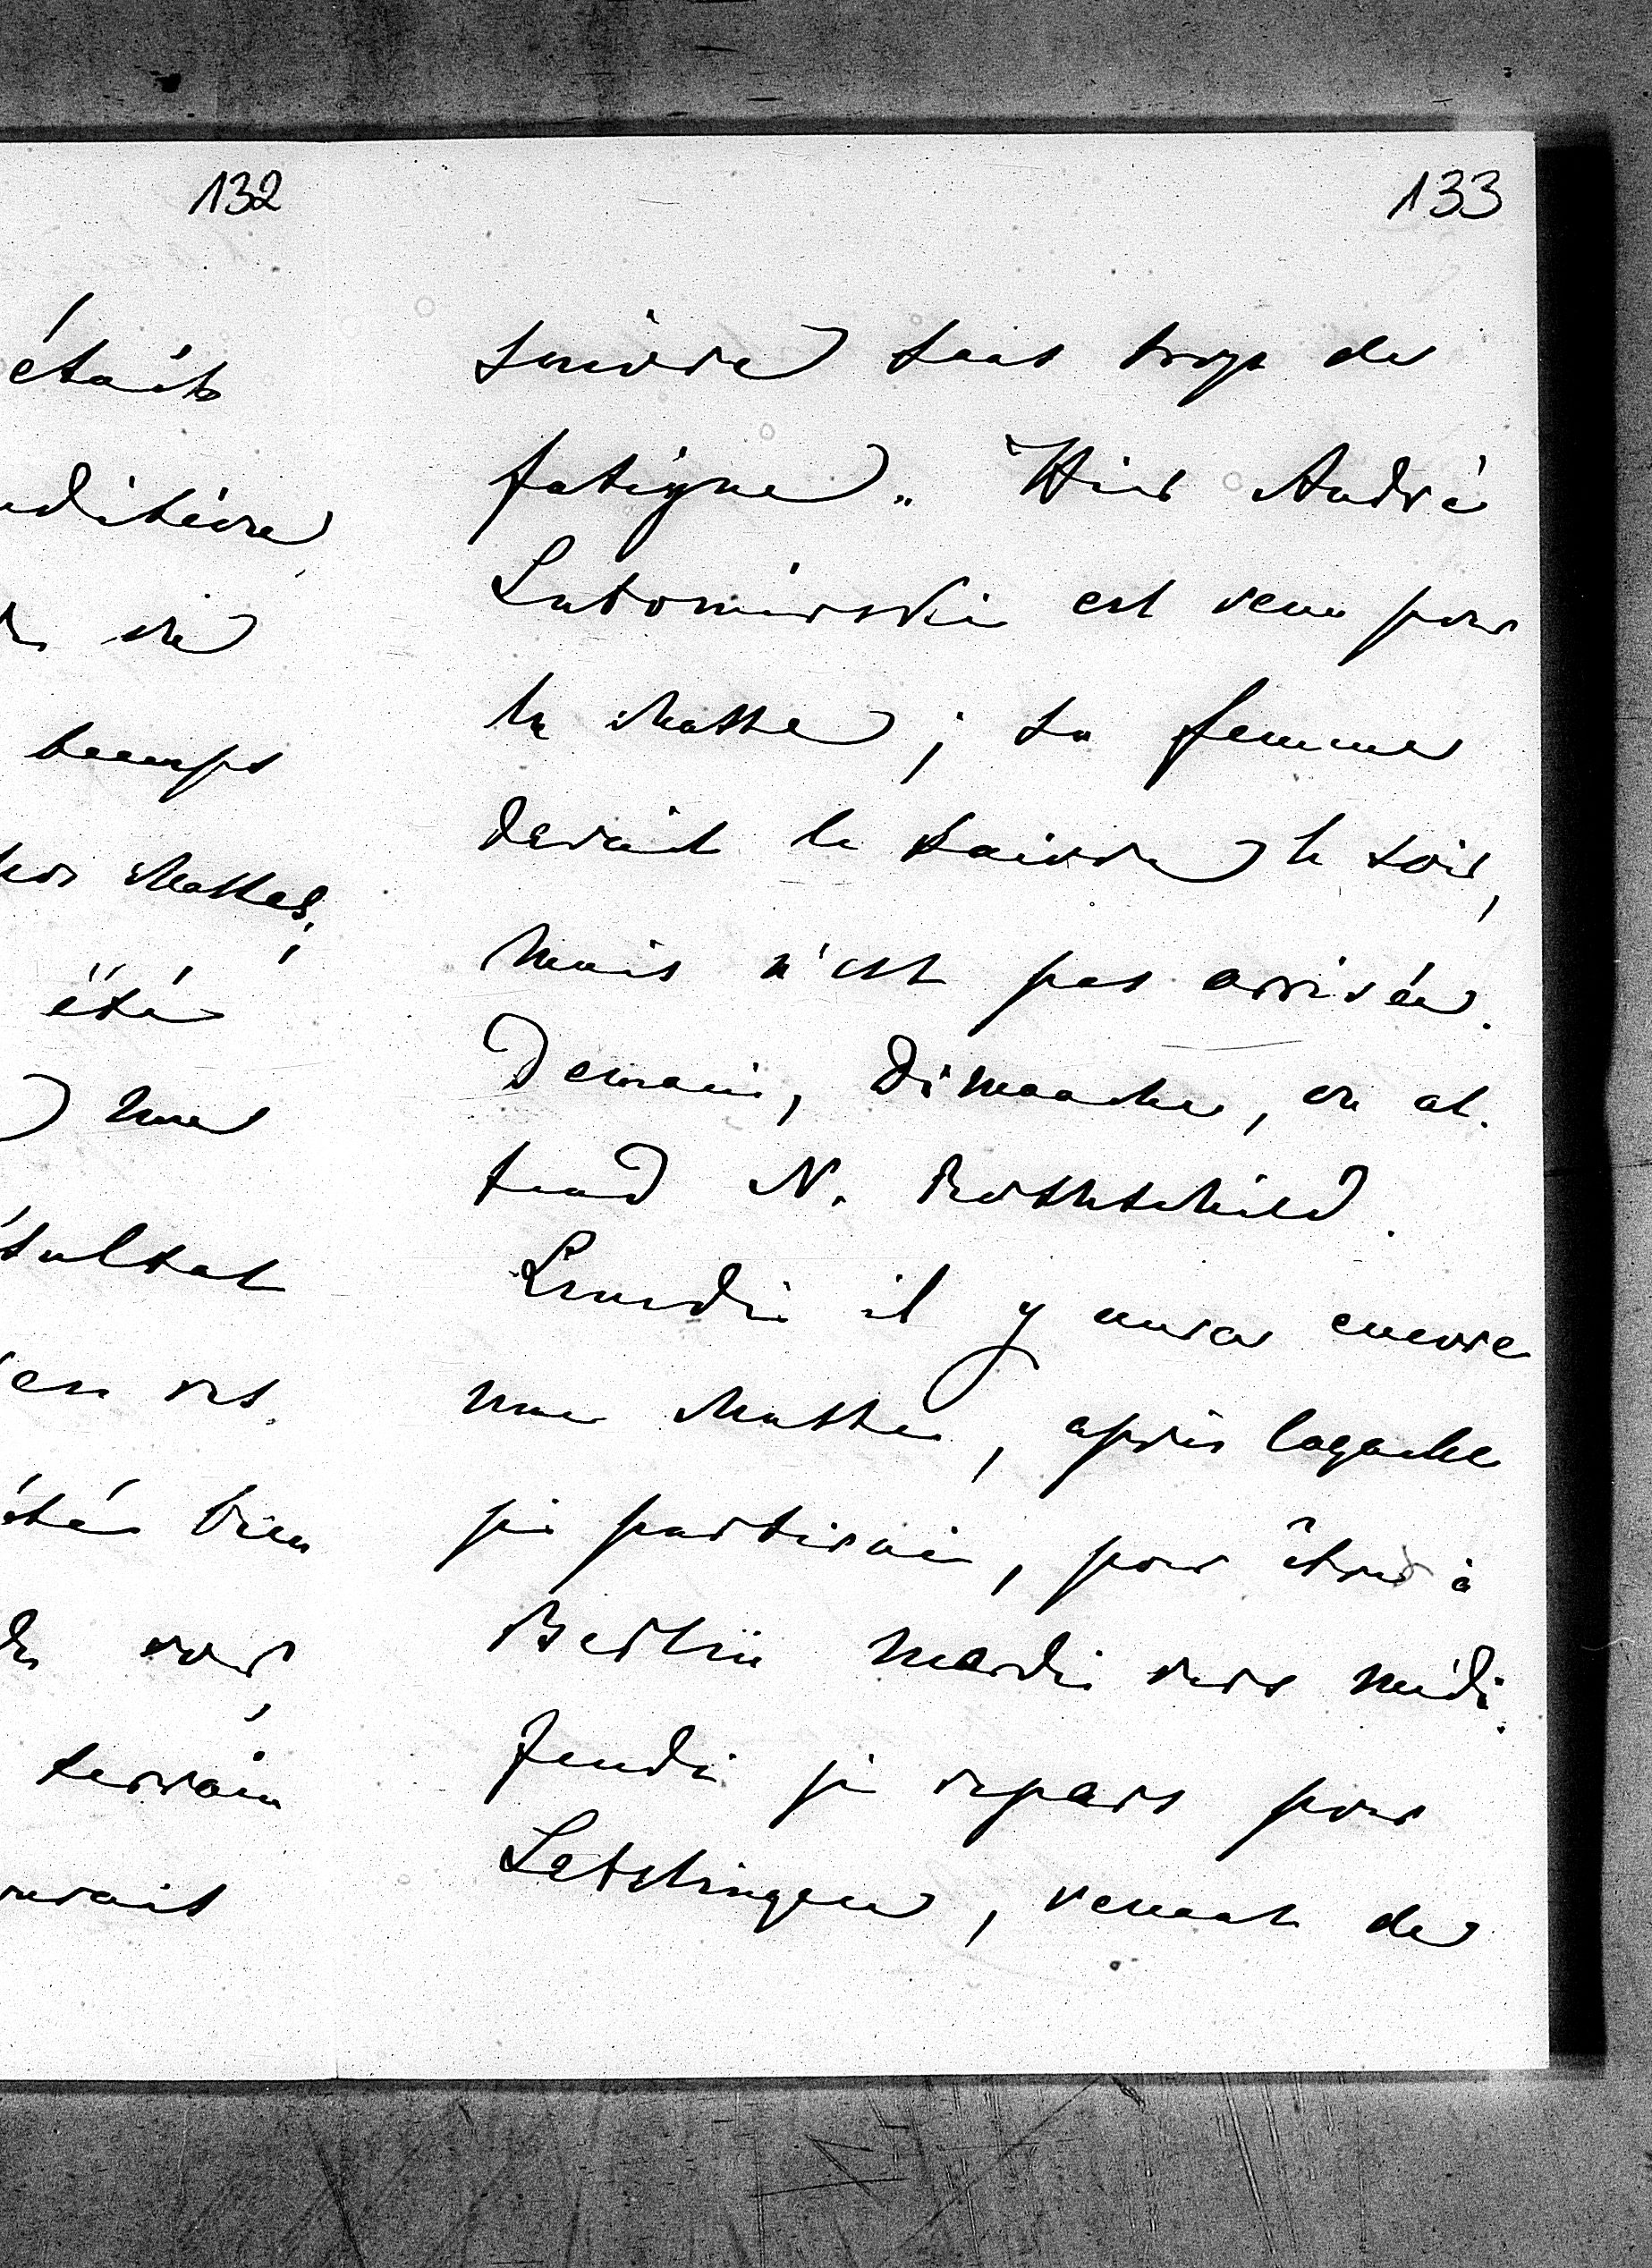 132
était
été
temps
chasses;
été
une
sultat
en res.
été bien
terrain
133
suivre sans trop de
fatigue„ Hier André
Lubomirski est venu pour
la chasse; sa femme
devait le suivre le soir,
mais n'est pas arrivée.
Demain, Dimanche, on at-
tend N. Rothschild.
Lundi il y aura encore
une chasse, après laquelle
je partirai, pour être à
Berlin mardi vers midi.
Jeudi je repars pour
Letzlingen, venant de